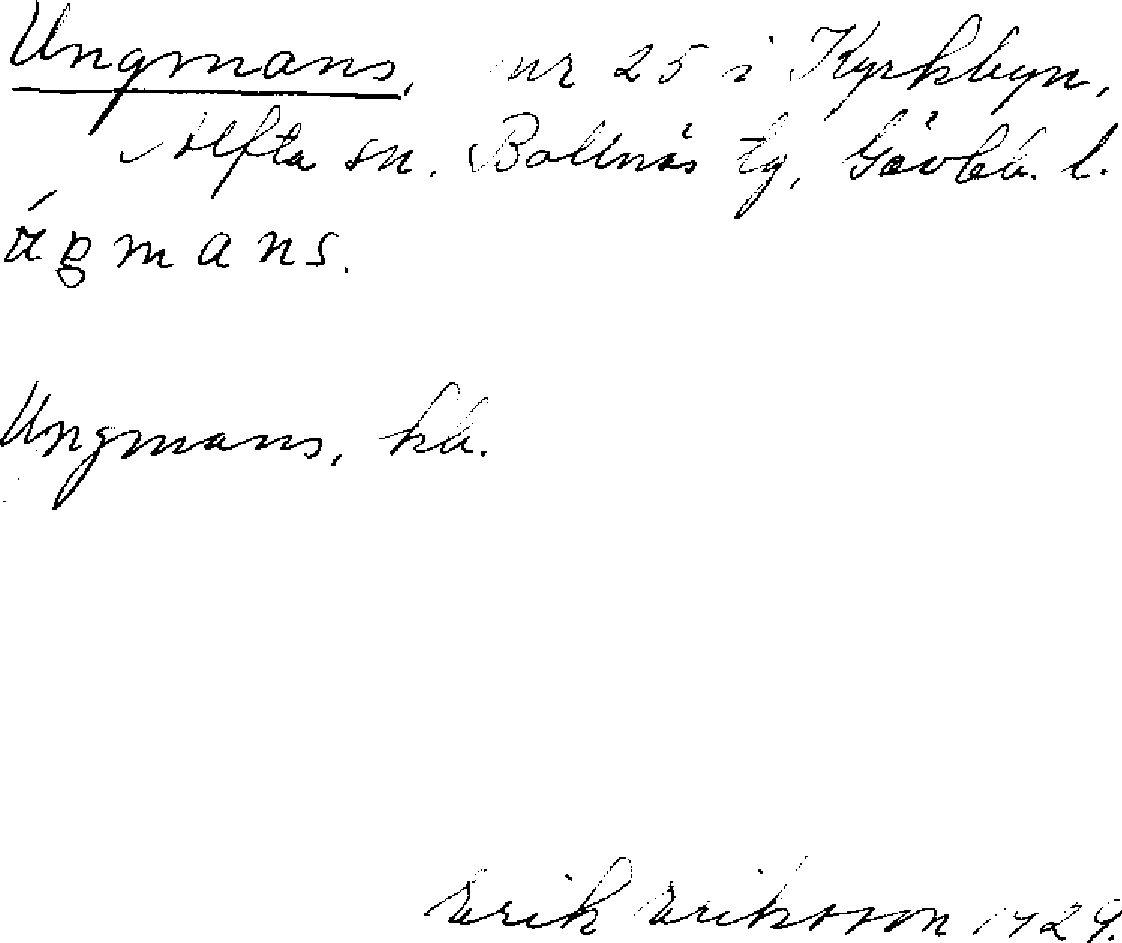 Ungmans, nr 25 i Kyrkbyn,
Alfta sn. Bollnäs tg, Gävleb. l.
mans.
Ungmans, kb.
Erik Eriksson 1929.